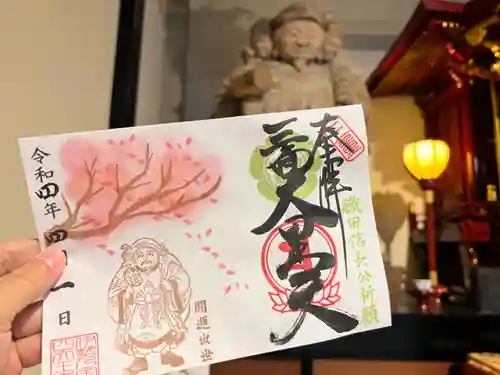 奉拝
三面大黒天
織田信長公祈願
開運出世
令和四年四月一日